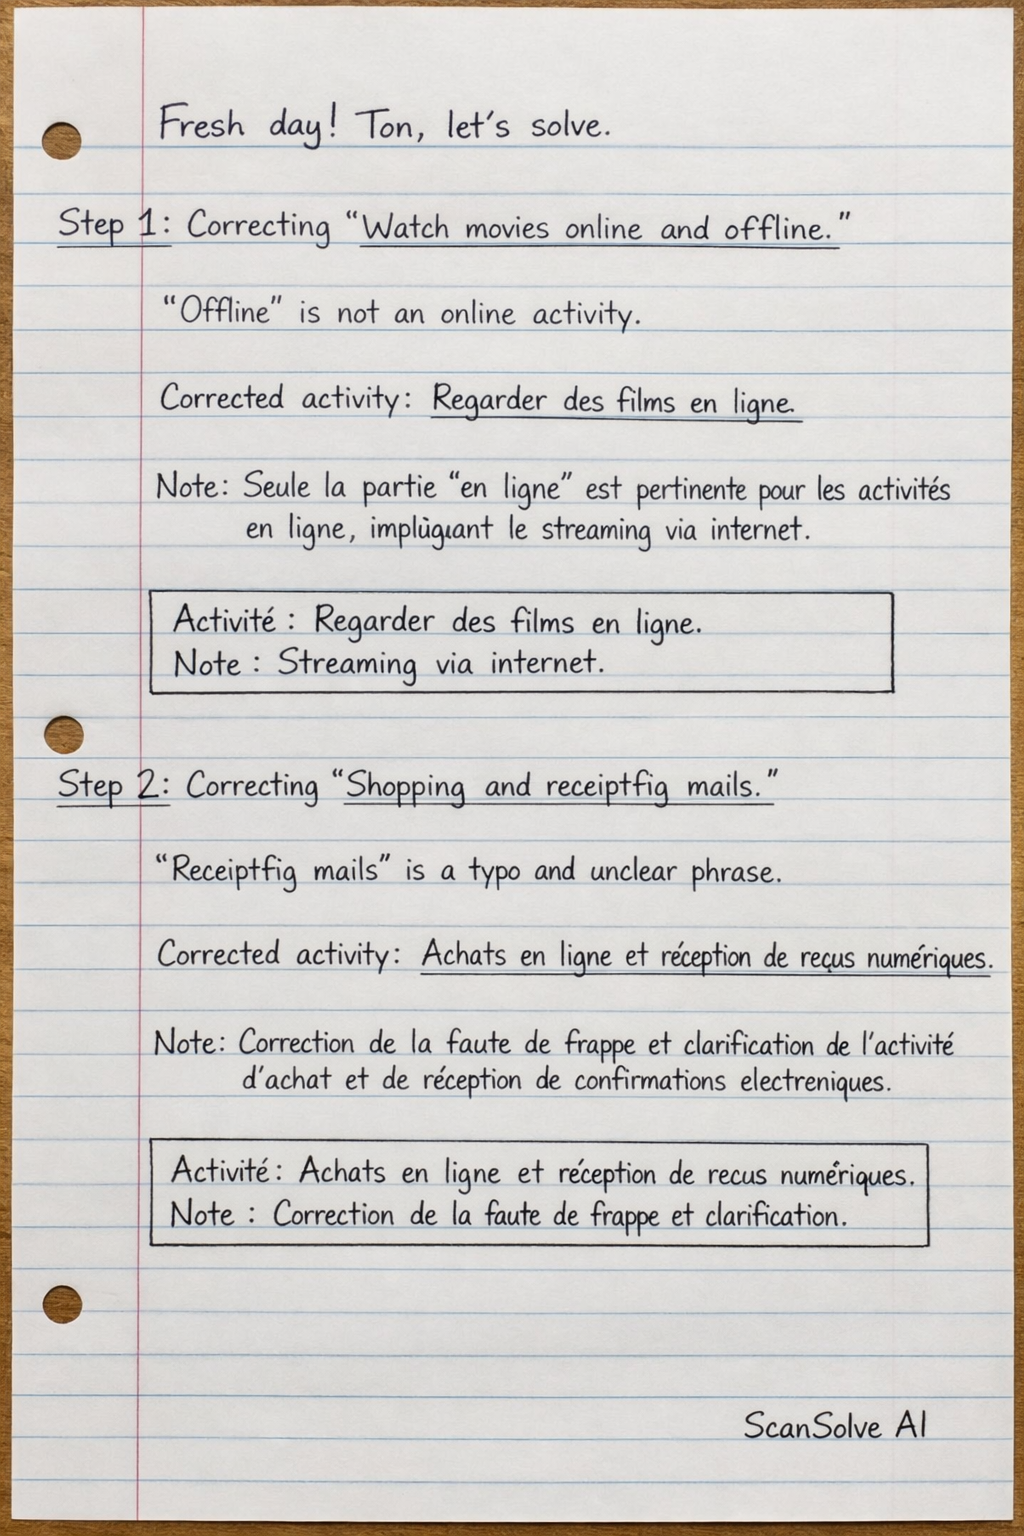 Fresh day! Ton, let's solve.
Step 1: Correcting "Watch movies online and offline."
"Offline" is not an online activity.
Corrected activity: Regarder des films en ligne.
Note: Seule la partie "en ligne" est pertinente pour les activités
en ligne, le streaming via internet.
Activité : Regarder des films en ligne.
Note : Streaming via internet.
Step 2: Correcting "Shopping and receiptfig mails."
"Receiptfig mails" is a typo and unclear phrase.
Corrected activity: Achats en ligne et réception de reçus numériques.
Note: Correction de la faute de frappe et clarification de l'activité
d'achat et de réception de confirmations electreniques.
Activité: Achats en ligne et réception de recus numériques.
Note : Correction de la faute de frappe et clarification.
ScanSolve AI